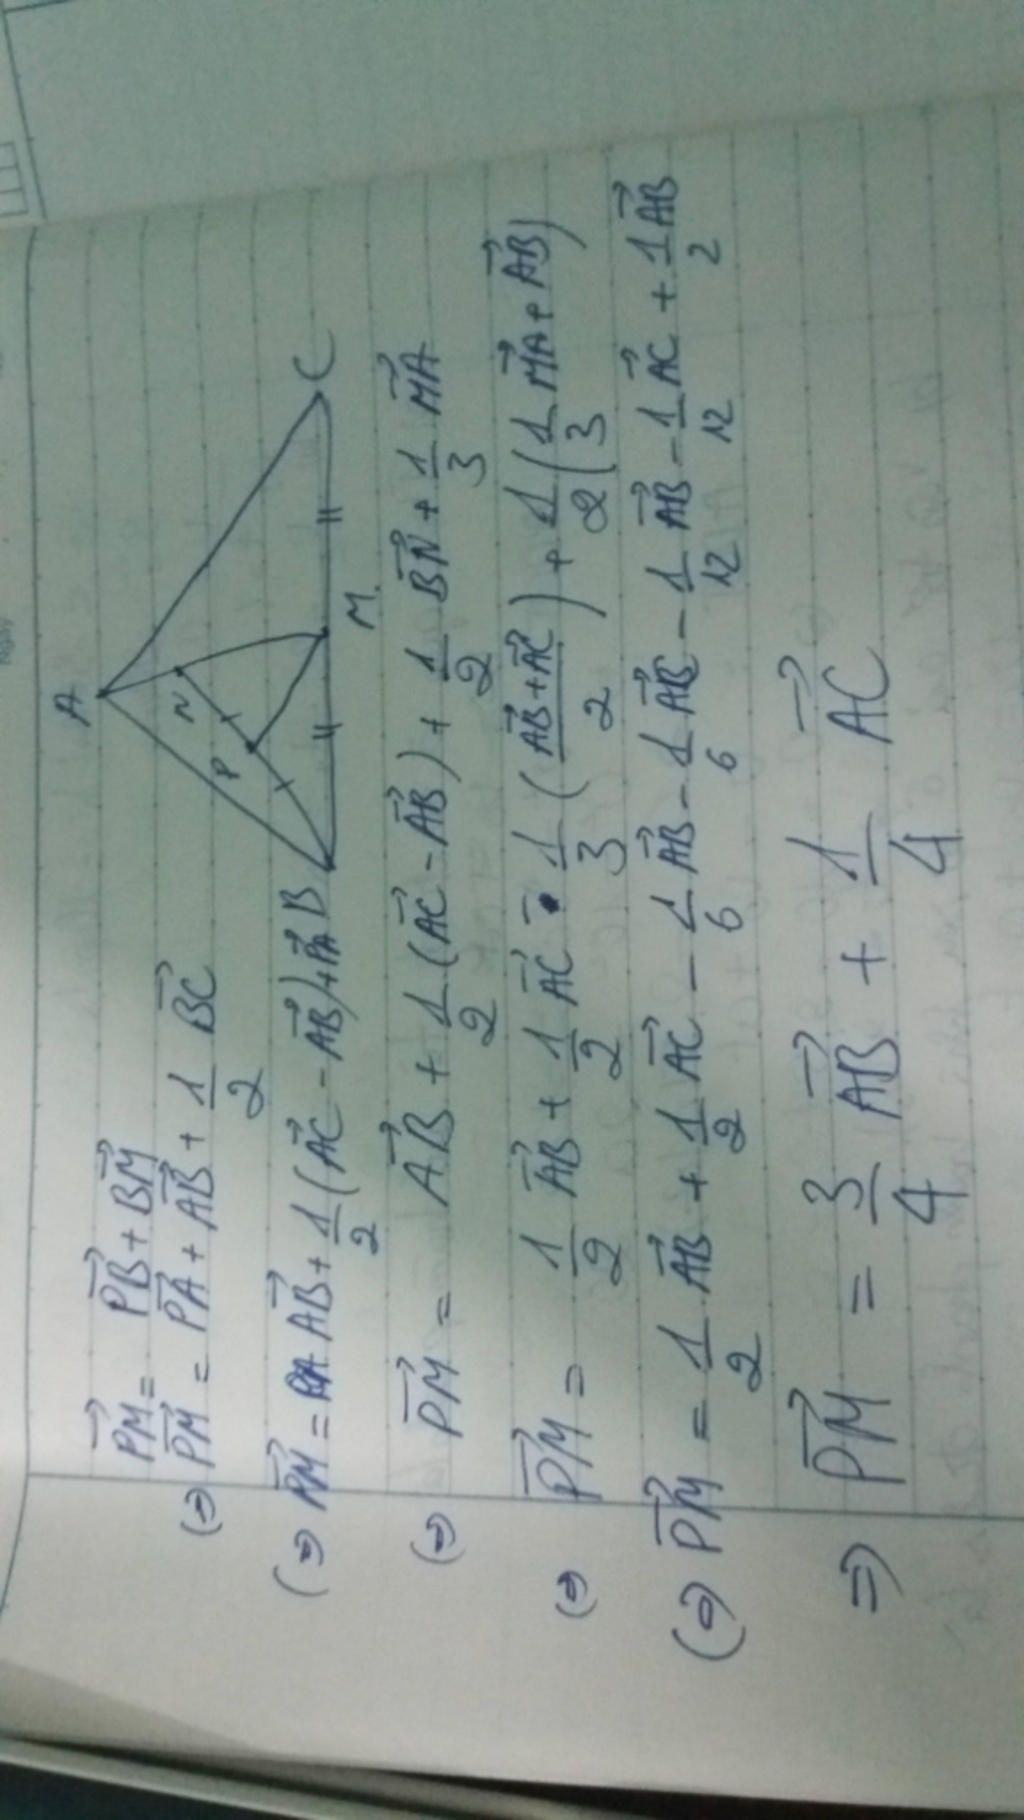 A
N
P
B
M
C
PM⃗ = PB⃗ + BM⃗
(=) PM⃗ = PA⃗ + AB⃗ + 1/2 BC⃗
(=) PM⃗ = AB⃗ + 1/2 (AC⃗ - AB⃗) + PA⃗
(=) PM⃗ = AB⃗ + 1/2 (AC⃗ - AB⃗) + 1/2 BN⃗ + 1/3 MA⃗
(=) PM⃗ = 1/2 AB⃗ + 1/2 AC⃗ - 1/3 ( (AB⃗ + AC⃗)/2 ) + 1/2 ( 1/3 MA⃗ + AB⃗ )
(=) PM⃗ = 1/2 AB⃗ + 1/2 AC⃗ - 1/6 AB⃗ - 1/6 AC⃗ - 1/12 AB⃗ - 1/12 AC⃗ + 1/2 AB⃗
=) PM⃗ = 3/4 AB⃗ + 1/4 AC⃗